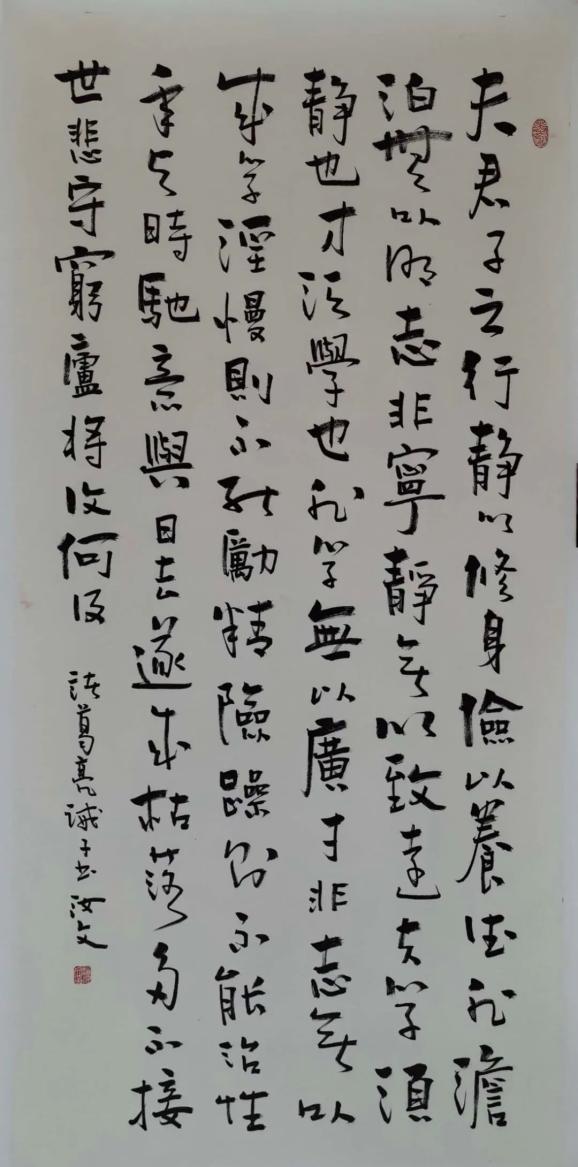 夫君子之行静以修身儉以養德非澹
泊無以明志非寧靜无以致遠夫學須
静也才須學也非學無以廣才非志无以
成學淫慢則不能勵精險躁則不能治性
年与時馳意與日去遂成枯落多不接
世悲守窮廬将復何及
諸葛亮誡子書 汝文